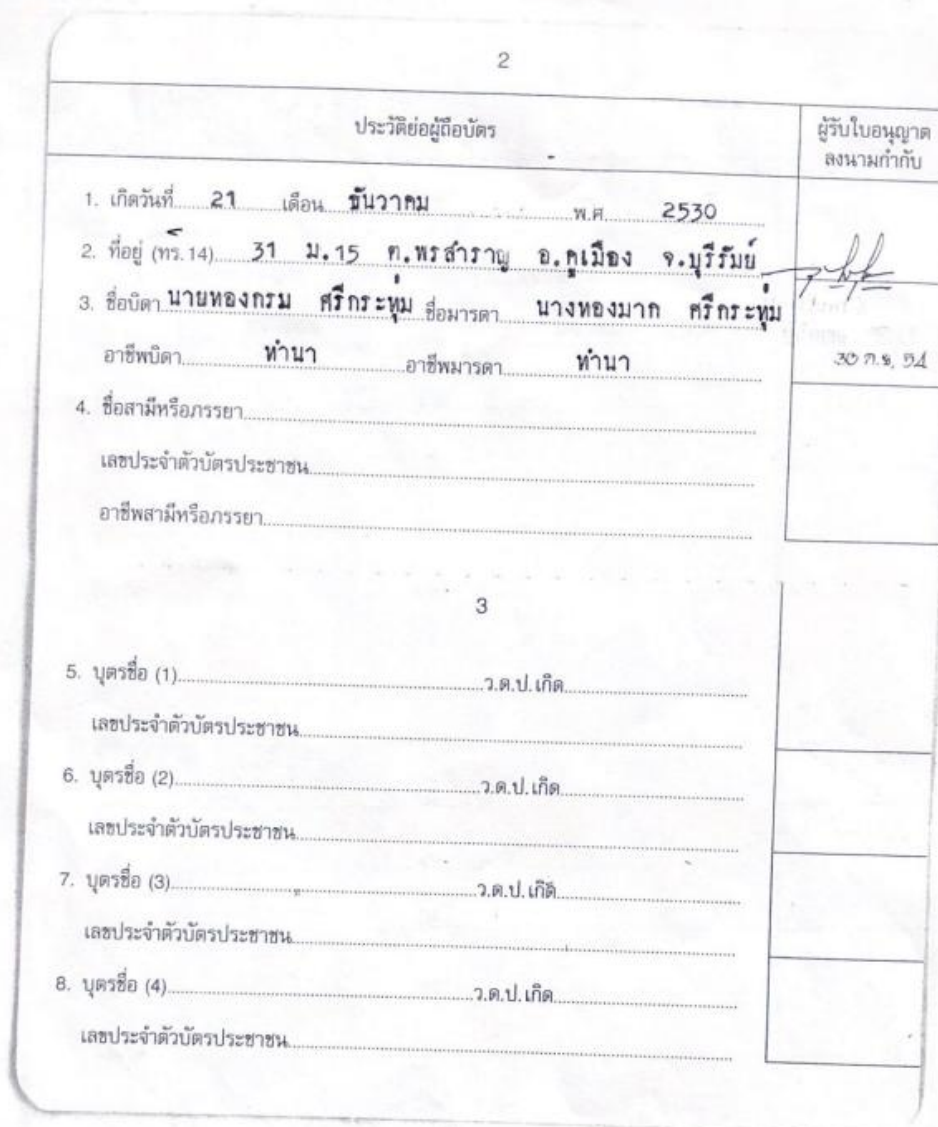 2
ประวัติย่อผู้ถือบัตร
ผู้รับใบอนุญาต
ลงนามกำกับ
1. เกิดวันที่ 21 เดือน ธันวาคม พ.ศ. 2530
2. ที่อยู่ (ทร.14) 31 ม.15 ต.พรสำราญ อ.คูเมือง จ.บุรีรัมย์
3. ชื่อบิดา นายทองกรม ศรีกระทุ่ม ชื่อมารดา นางทองมาก ศรีกระทุ่ม
อาชีพบิดา ทำนา อาชีพมารดา ทำนา
30 ก.ย. 54
4. ชื่อสามีหรือภรรยา
เลขประจำตัวบัตรประชาชน
อาชีพสามีหรือภรรยา
3
5. บุตรชื่อ (1) ว.ด.ป. เกิด
เลขประจำตัวบัตรประชาชน
6. บุตรชื่อ (2) ว.ด.ป. เกิด
เลขประจำตัวบัตรประชาชน
7. บุตรชื่อ (3) ว.ด.ป. เกิด
เลขประจำตัวบัตรประชาชน
8. บุตรชื่อ (4) ว.ด.ป. เกิด
เลขประจำตัวบัตรประชาชน